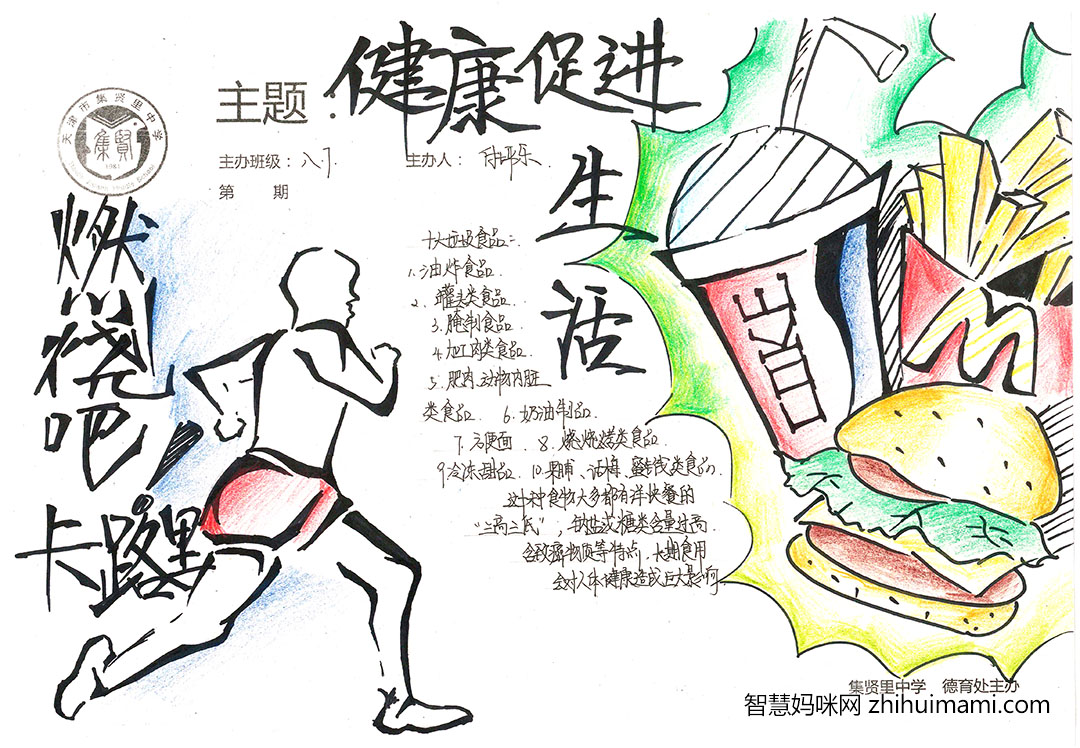 天津市集贤里中学
集賢
1981
主题：健康促进
主办班级：八7.
主办人：
第 期
生活
燃烧吧
卡路里
十大垃圾食品：
1.油炸食品.
2.罐头类食品.
3.腌制食品.
4.加工肉类食品.
5.肥肉、动物内脏
类食品. 6.奶油制品.
7.方便面. 8.烧烤类食品.
9冷冻甜品. 10.果脯、话梅、蜜饯类食品.
这种食物大多都有洋快餐的
“三高三低”，钠盐或糖类含量过高.
含致癌物质等特点. 长期食用
会对人体健康造成巨大影响
COKE
M
集贤里中学 德育处主办
智慧妈咪网 zhihuimami.com